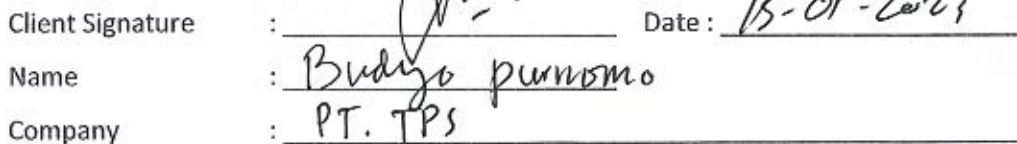 Client Signature : Date : 15-01-2023
Name : Budiyo purnomo
Company : PT. TPS